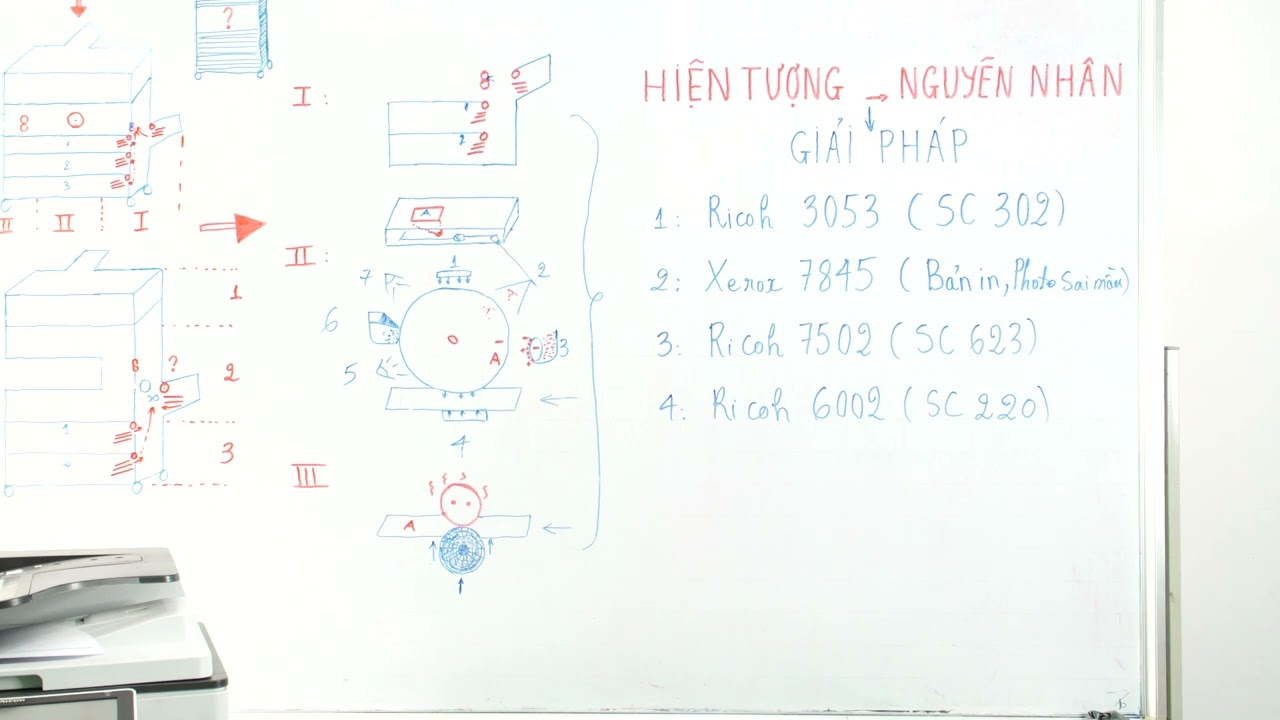 ?
8
1
2
3
II
II
I
1
8
?
2
1
3
I:
8
1
2
II:
A
1
2
7
A
6
3
A
5
4
III
A
HIỆN TƯỢNG → NGUYÊN NHÂN
↓
GIẢI PHÁP
1: Ricoh 3053 (SC 302)
2: Xerox 7845 (Bản in, Photo Sai màu)
3: Ricoh 7502 (SC 623)
4: Ricoh 6002 (SC 220)